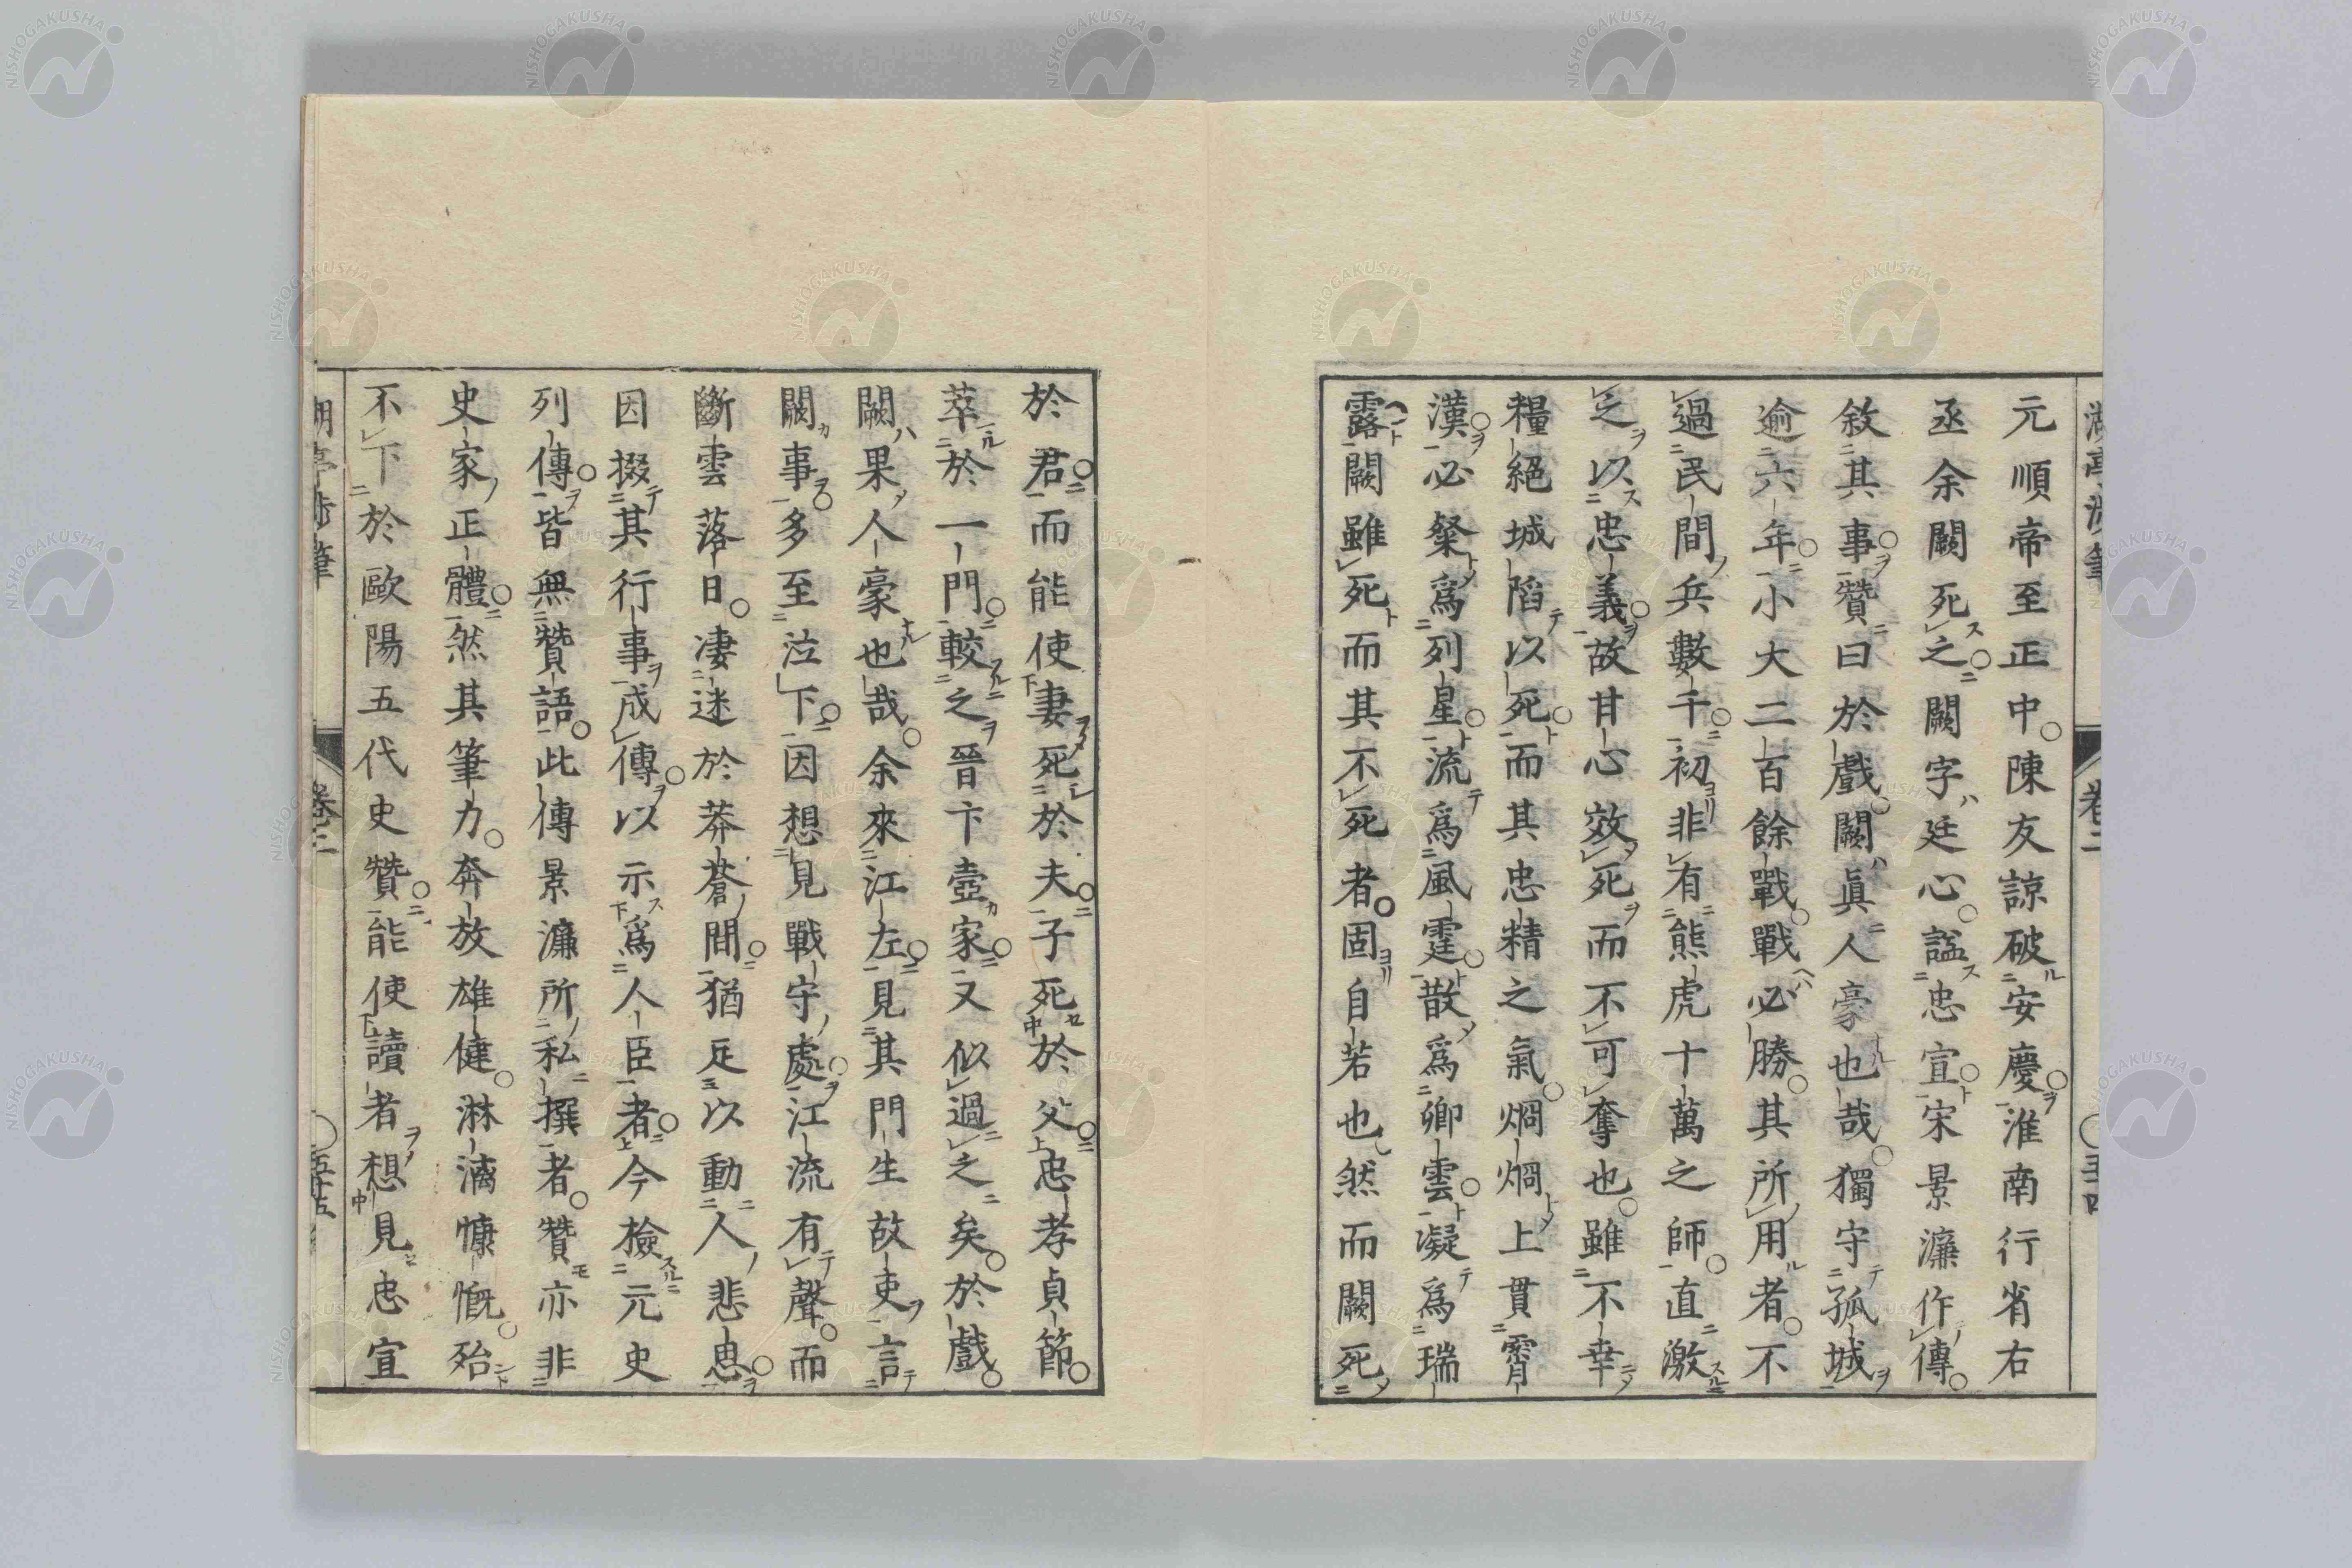 元順帝至正中陳友諒破安慶淮南行省右
丞余闕死之闕字廷心謚忠宣宋景濂作傳
敘其事贊曰於戲闕眞人豪也哉獨守孤城
逾六年小大二百餘戰戰必勝其所用者不
過民間兵數千初非有熊虎十萬之師直激
之以忠義故甘心效死而不可奪也雖不幸
糧絕城陷以死而其忠精之氣烱烱上貫霄
漢必粲爲列星流爲風霆散爲卿雲凝爲瑞
露闕雖死而其不死者固自若也然而闕死
於君而能使妻死於夫子死於父忠孝貞節
萃於一門較之晉卞壼家又似過之矣於戲
闕果人豪也哉余來江左見其門生故吏言
闕事多至泣下因想見戰守處江流有聲而
斷雲落日淒迷於莽蒼間猶足以動人悲思
因掇其行事成傳以示爲人臣者今檢元史
列傳皆無贊語此傳景濂所私撰者贊亦非
史家正體然其筆力奔放雄健淋漓慷慨殆
不下於歐陽五代史贊能使讀者想見忠宣
卷二